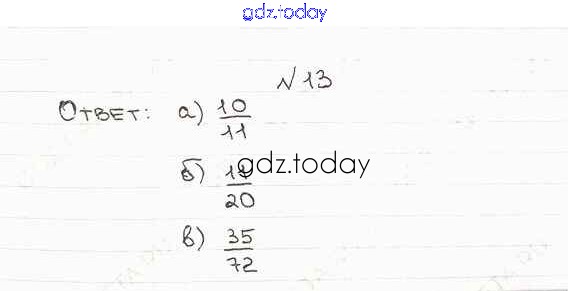 gdz.today
№ 13
Ответ: а) 10/11
б) /20
gdz.today
в) 35/72